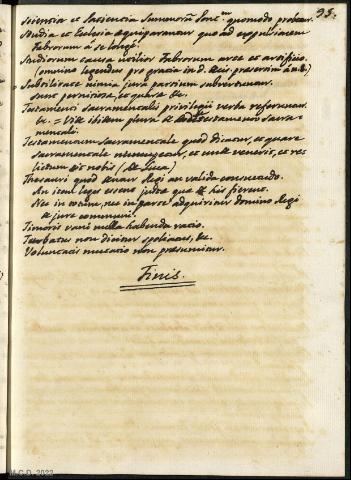 95.
Scientia et Sapientia Summorũ Pont.um quomodo probetur.
Studia et Ecclesia æquiparantur quo ad expulsionem
Fabrorum a se longè.
Studiorum causa nobilior Fabrorum arte et artificio.
(omnino legendus pro gratia in d.
Subtilitate nimia jura partium subvertuntur.
sunt perniciosa, et quare &c.
Testamenti Sacramentalis privilegii verba referuntur.
&c. = Vide ibidem plura de testamento sacra-
mentali.
Testamentum Sacramentale quod dicatur, et quare
Sacramentale nuncupetur, et unde venerit, et re-
lictum sit nobis, (de Luca)
Thesauri quod dentur Regi an valida consuetudo.
An item leges essent justæ quæ de his fierent.
Nec in totum, nec in parte adquiritur domino Regi
de jure communi.
Timoris vani nulla habenda ratio.
Turbatus non dicitur spoliatus, &c.
Voluntatis mutatio non præsumitur.
Finis.
M.C.D. 2022